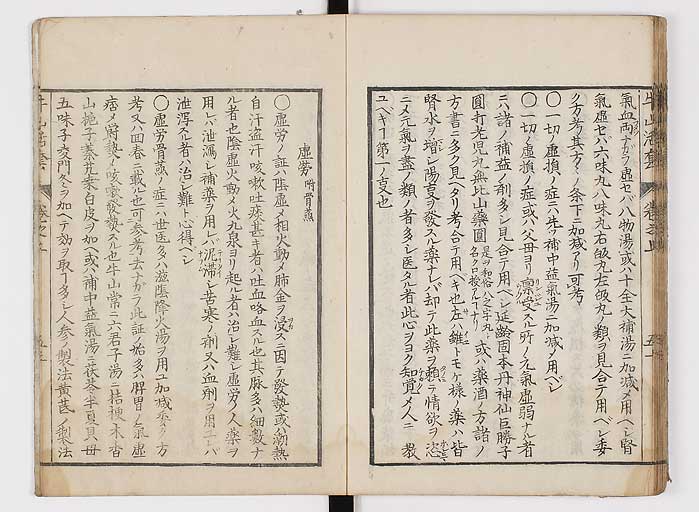 氣血両ナガラ虚セバ八物湯或ハ十全大補湯ニ加减メ用ヘシ腎
氣虚セバ六味丸八味丸右皈丸左皈丸ノ類ヲ見合テ用ベシ委
ク方考其方々ノ条下ニ加减アリ可考
〇一切ノ虚損ノ症ニハ先ツ補中益氣湯ニ加减メ用ベシ
〇一切ノ虚損ノ症或ハ父母ヨリ禀受スル所ノ元氣虚弱ナル者
ニハ諸ノ補益ノ剤多シ見合テ用ベシ延齢固本丹神仙巨勝子
圓打老児丸無比山藥圓 或ハ藥酒ノ方諸ノ
方書ニ多ク見ヘタリ考合テ用ベキ也左ハ雖トモケ様ノ藥ハ皆
腎水ヲ増シ陽夏ヲ發スル藥ナレバ却テ此藥ヲ頼テ情欲ヲ恣
ニメ元氣ヲ盡ノ類ノ者多シ医タル者此心ヲヨク知覚メ人ニ教
ユベキ丁第一ノ夏也
虚労 附骨蒸
〇虚労ノ証ハ陰虚メ相火動メ肺金ヲ浸スニ因テ發熱或ハ潮熱
自汗盗汗咳嗽吐痰甚キ者ハ吐血咯血スル也其脉多ハ細數ナ
ル者也陰虚火動メ火九泉ヨリ起ル者ハ治シ難シ虚労ノ人藥ヲ
用レバ泄瀉シ補藥ヲ用レバ泥滞シ苦寒ノ剤又ハ血剤ヲ用ユレバ
泄瀉スル者ハ治シ難ト心得ベシ
〇虚労骨蒸ノ症ニハ世医多ハ滋陰降火湯ヲ用ユ加减委ク方
考又ハ回春ニ載ル也可参考去ナガラ此証ノ始多ハ脾胃ノ氣虚
痞メ欝熱ノ咳嗽發熱スル也牛山常ニ六君子湯ニ桔梗木香
山梔子秦艽桑白皮ヲ加ヘ或ハ補中益氣湯ニ茯苓半夏貝母
五味子麦門冬ヲ加ヘテ効ヲ取丁多シ人参ノ製法黄芪ノ製法